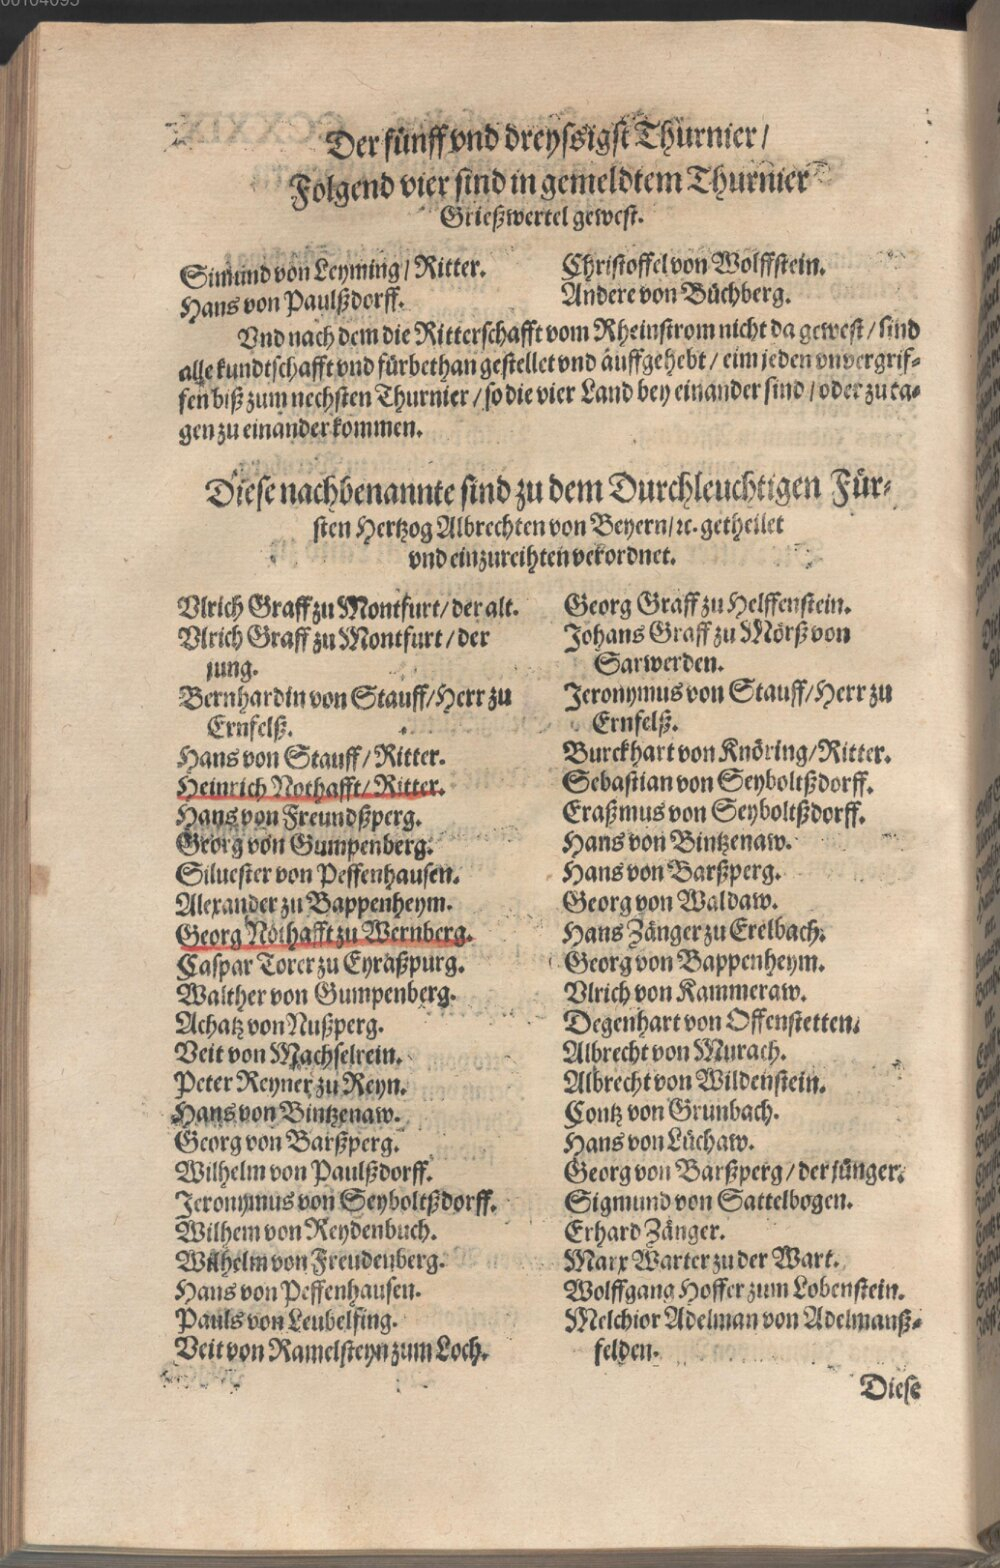 Der fünff vnd dreyssigst Thurnier/
Folgend vier sind in gemeldtem Thurnier
Grießwertel gewest.
Simund von Leyming/ Ritter.
Hans von Paulßdorff.
Christoffel von Wolffstein.
Andere von Büchberg.
Vnd nach dem die Ritterschafft vom Rheinstrom nicht da gewest/ sind
alle kundtschafft vnd fürbethan gestellet vnd äuffgehebt/ eim jeden vnvergrif-
fen biß zum nechsten Thurnier/ so die vier Land bey einander sind/ oder zu ta-
gen zu einander kommen.
Diese nachbenannte sind zu dem Durchleuchtigen Für-
sten Hertzog Albrechten von Beyern/ ꝛc. getheilet
vnd einzureihten verordnet.
Vlrich Graff zu Montfurt/ der alt.
Vlrich Graff zu Montfurt/ der
jung.
Bernhardin von Stauff/ Herr zu
Ernfelß.
Hans von Stauff/ Ritter.
Heinrich Nothafft/ Ritter.
Hans von Freundßperg.
Georg von Gumpenberg.
Siluester von Peffenhausen.
Alexander zu Bappenheym.
Georg Nothafft zu Wernberg.
Caspar Torer zu Eyraßpurg.
Walther von Gumpenberg.
Achatz von Nußperg.
Veit von Machselrein.
Peter Reyner zu Reyn.
Hans von Bintzenaw.
Georg von Barßperg.
Wilhelm von Paulßdorff.
Jeronymus von Seyboltßdorff.
Wilhem von Reydenbuch.
Wilhelm von Freudenberg.
Hans von Peffenhausen.
Pauls von Leubelfing.
Veit von Ramelsteyn zum Loch.
Georg Graff zu Helffenstein.
Johans Graff zu Mörß von
Sarwerden.
Jeronymus von Stauff/ Herr zu
Ernfelß.
Burckhart von Knöring/ Ritter.
Sebastian von Seyboltßdorff.
Eraßmus von Seyboltßdorff.
Hans von Bintzenaw.
Hans von Barßperg.
Georg von Waldaw.
Hans Zänger zu Erelbach.
Georg von Bappenheym.
Vlrich von Kammeraw.
Degenhart von Offenstetten.
Albrecht von Murach.
Albrecht von Wildenstein.
Contz von Grunbach.
Hans von Lüchaw.
Georg von Barßperg/ der jünger.
Sigmund von Sattelbogen.
Erhard Zänger.
Marx Warter zu der Wart.
Wolffgang Hoffer zum Lobenstein.
Melchior Adelman von Adelmanß-
felden.
Diese